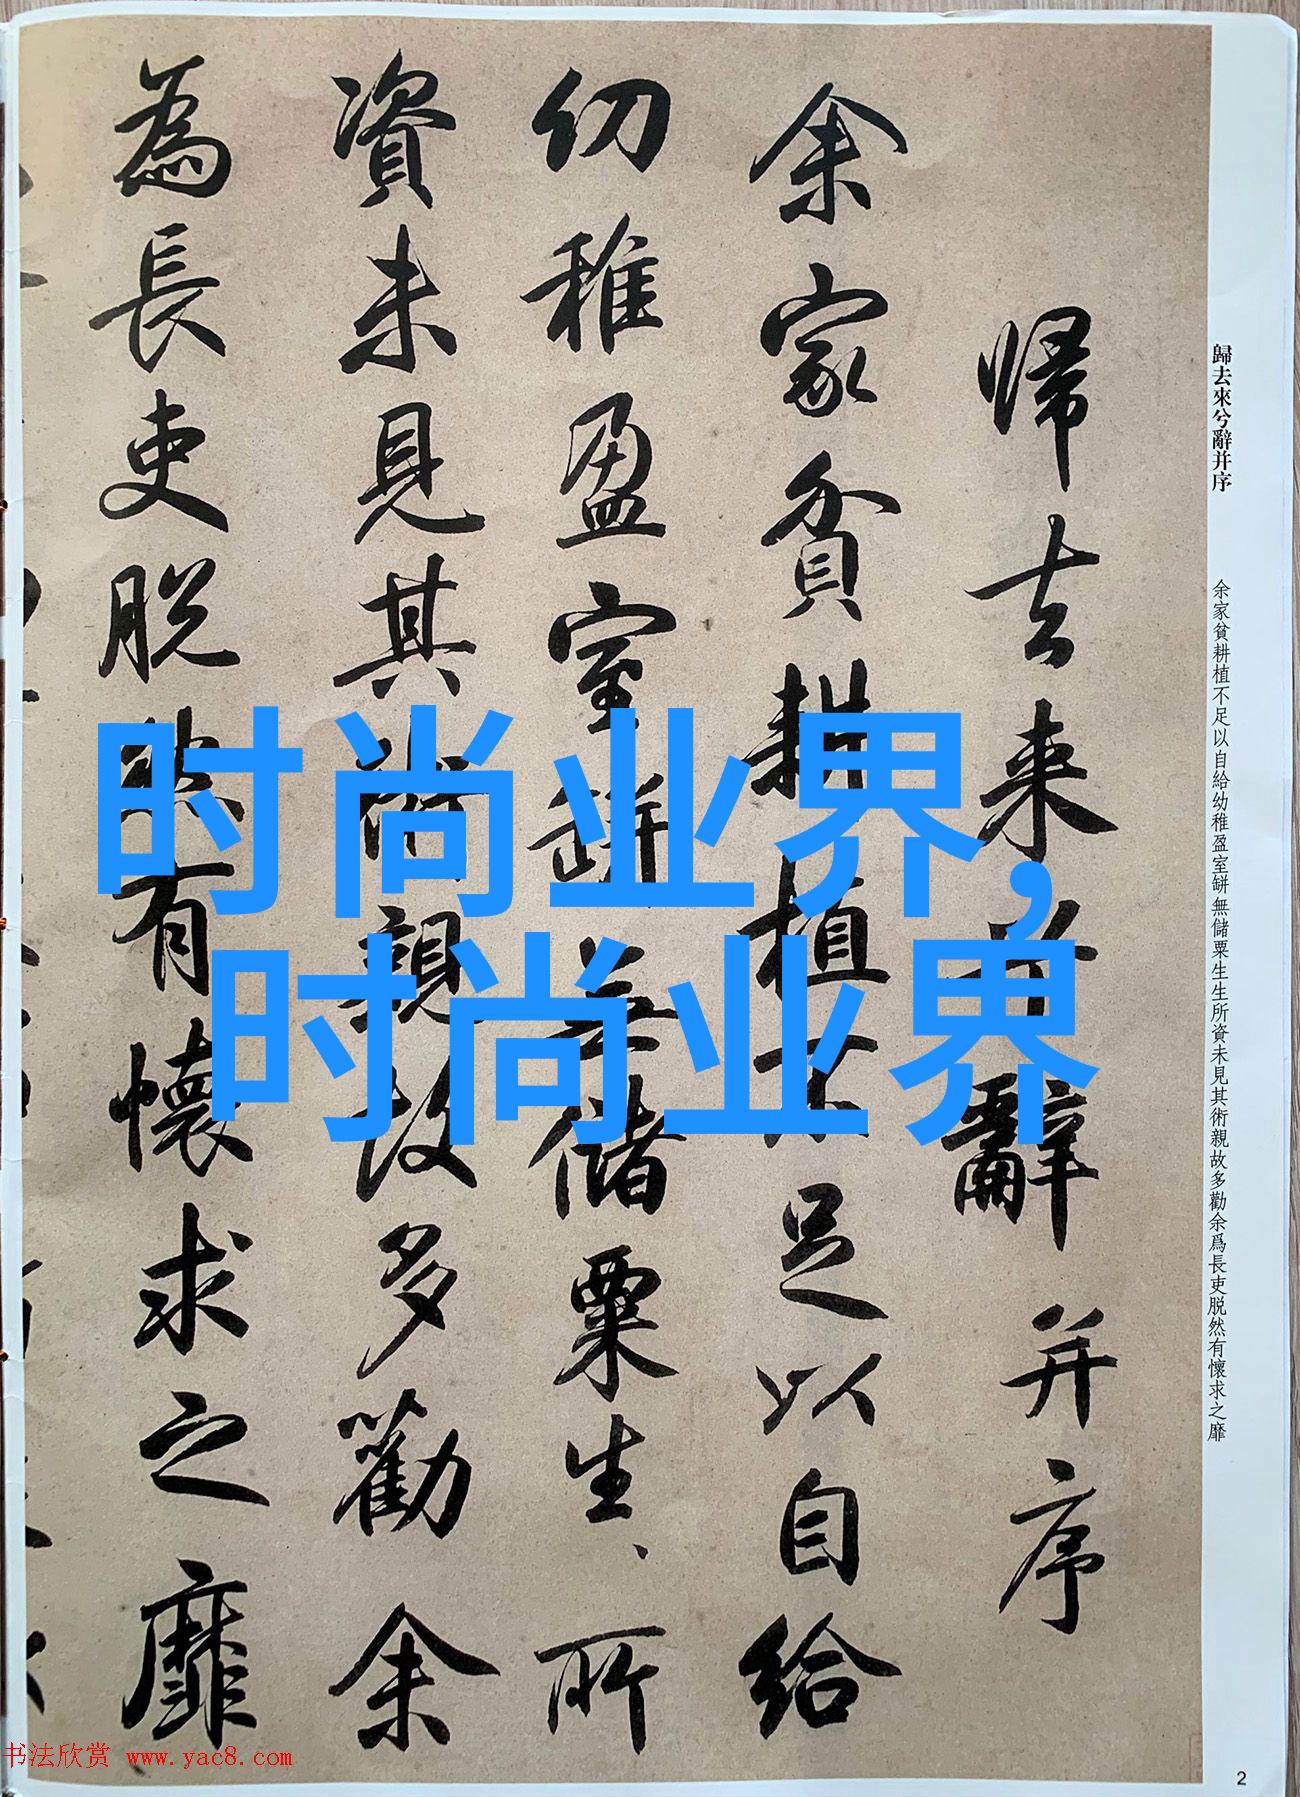 歸去来兮辭并序
余家貧耕植不足以自給
幼稚盈室缾無儲粟生、所
資未見其術親故多勸余
為長吏脱然有懷求之靡
歸去來兮辭并序
余家貧耕植不足以自給幼稚盈室缾無儲粟生生所資未見其術親故多勸余爲長吏脱然有懷求之靡
时尚业界,
时尚业界
书法欣赏 www.yac8.com
2